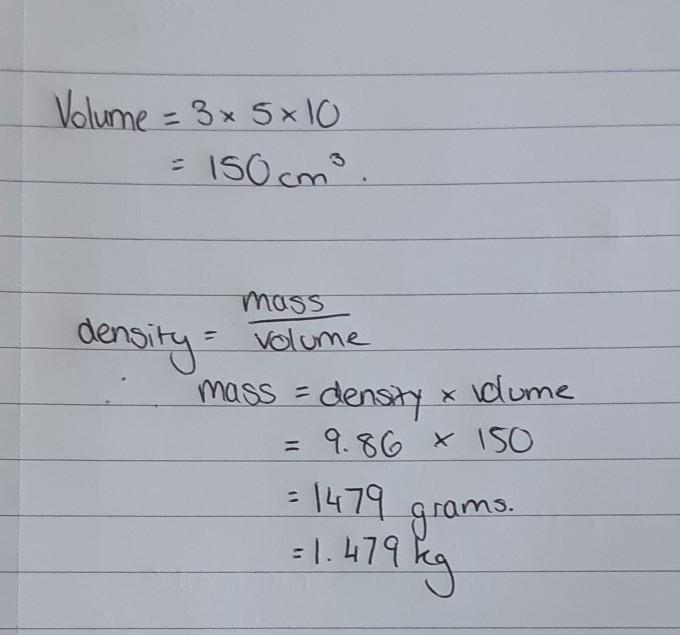 Volume = 3 × 5 × 10
= 150 cm³.
density = mass / volume
∴ mass = density × volume
= 9.86 × 150
= 1479 grams.
= 1.479 kg